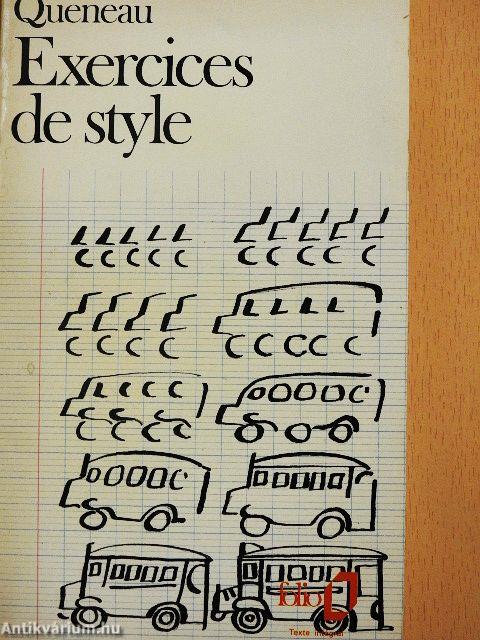 Queneau
Exercices
de style
folio
Texte intégral
Antikvárium.hu